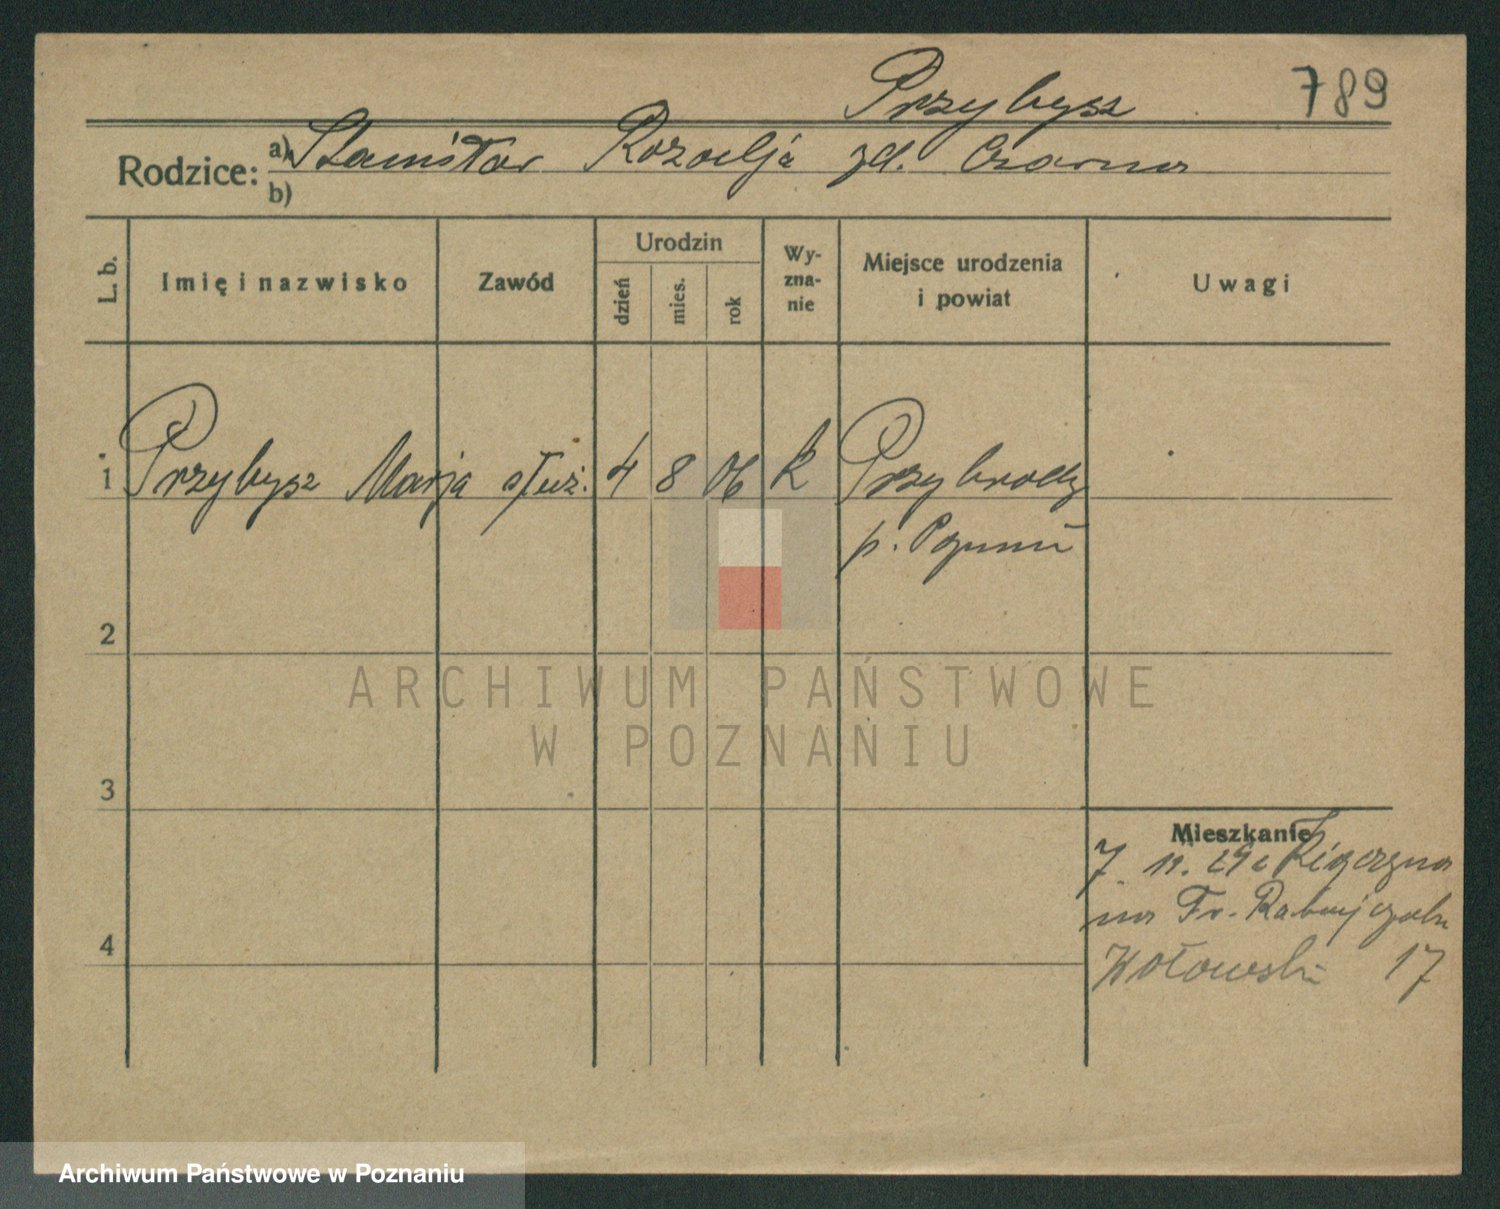 Przybysz 789
Rodzice: a) Stanisław Rozalja zd. Czarna
b)
L. b. Imię i nazwisko Zawód Urodzin dzień mies. rok Wy-zna-nie Miejsce urodzenia i powiat Uwagi
1 Przybysz Marja służ. 4 8 06 k Przybrody
p. Poznań
2
ARCHIWUM PAŃSTWOWE
W POZNANIU
3
Mieszkanie
7. 11.
na Fr. Ratajczaka
Wołowski 17
4
Archiwum Państwowe w Poznaniu